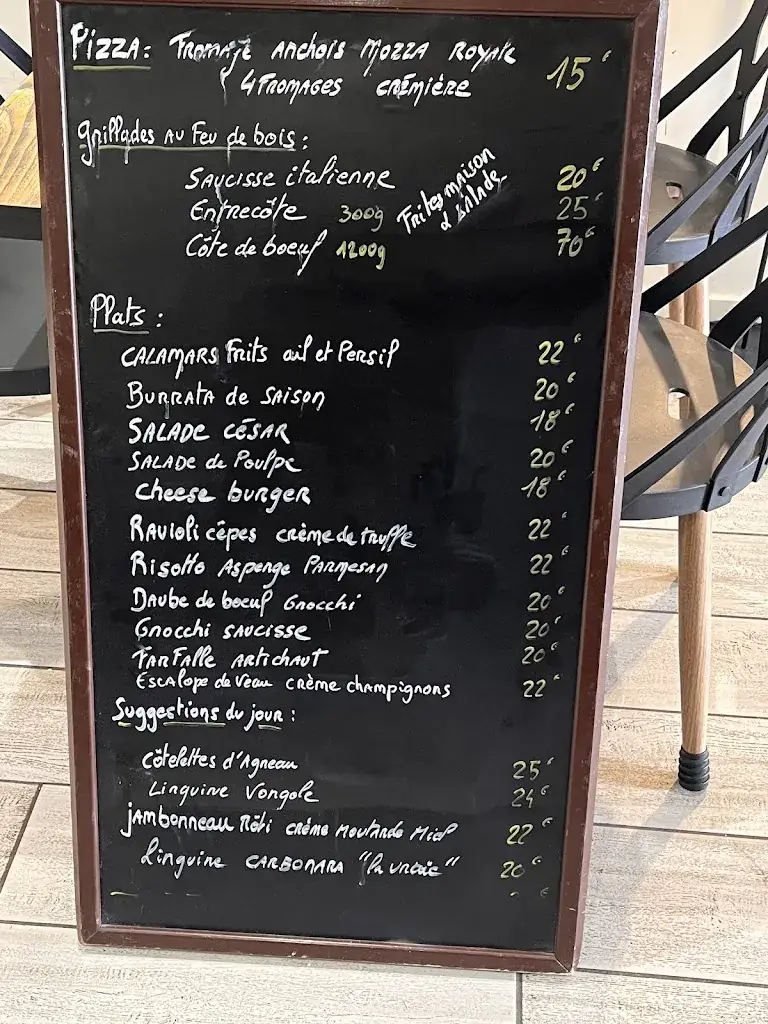 Pizza: Fromage Anchois Mozza Royale
4 Fromages Crémière 15€
Grillades au Feu de bois:
Saucisse italienne 20€
Entrecôte 300g 25€
Côte de boeuf 1200g 70€
Frites maison
& salade
Plats:
Calamars Frits ail et Persil 22€
Burrata de saison 20€
Salade César 18€
Salade de Poulpe 20€
Cheese burger 18€
Ravioli cèpes crème de truffe 22€
Risotto Asperge Parmesan 22€
Daube de boeuf Gnocchi 20€
Gnocchi saucisse 20€
Farfalle artichaut 20€
Escalope de Veau crème champignons 22€
Suggestions du jour:
Côtelettes d'Agneau 25€
Linguine Vongole 24€
Jambonneau Rôti crème Moutarde Miel 22€
Linguine Carbonara "la vraie" 20€